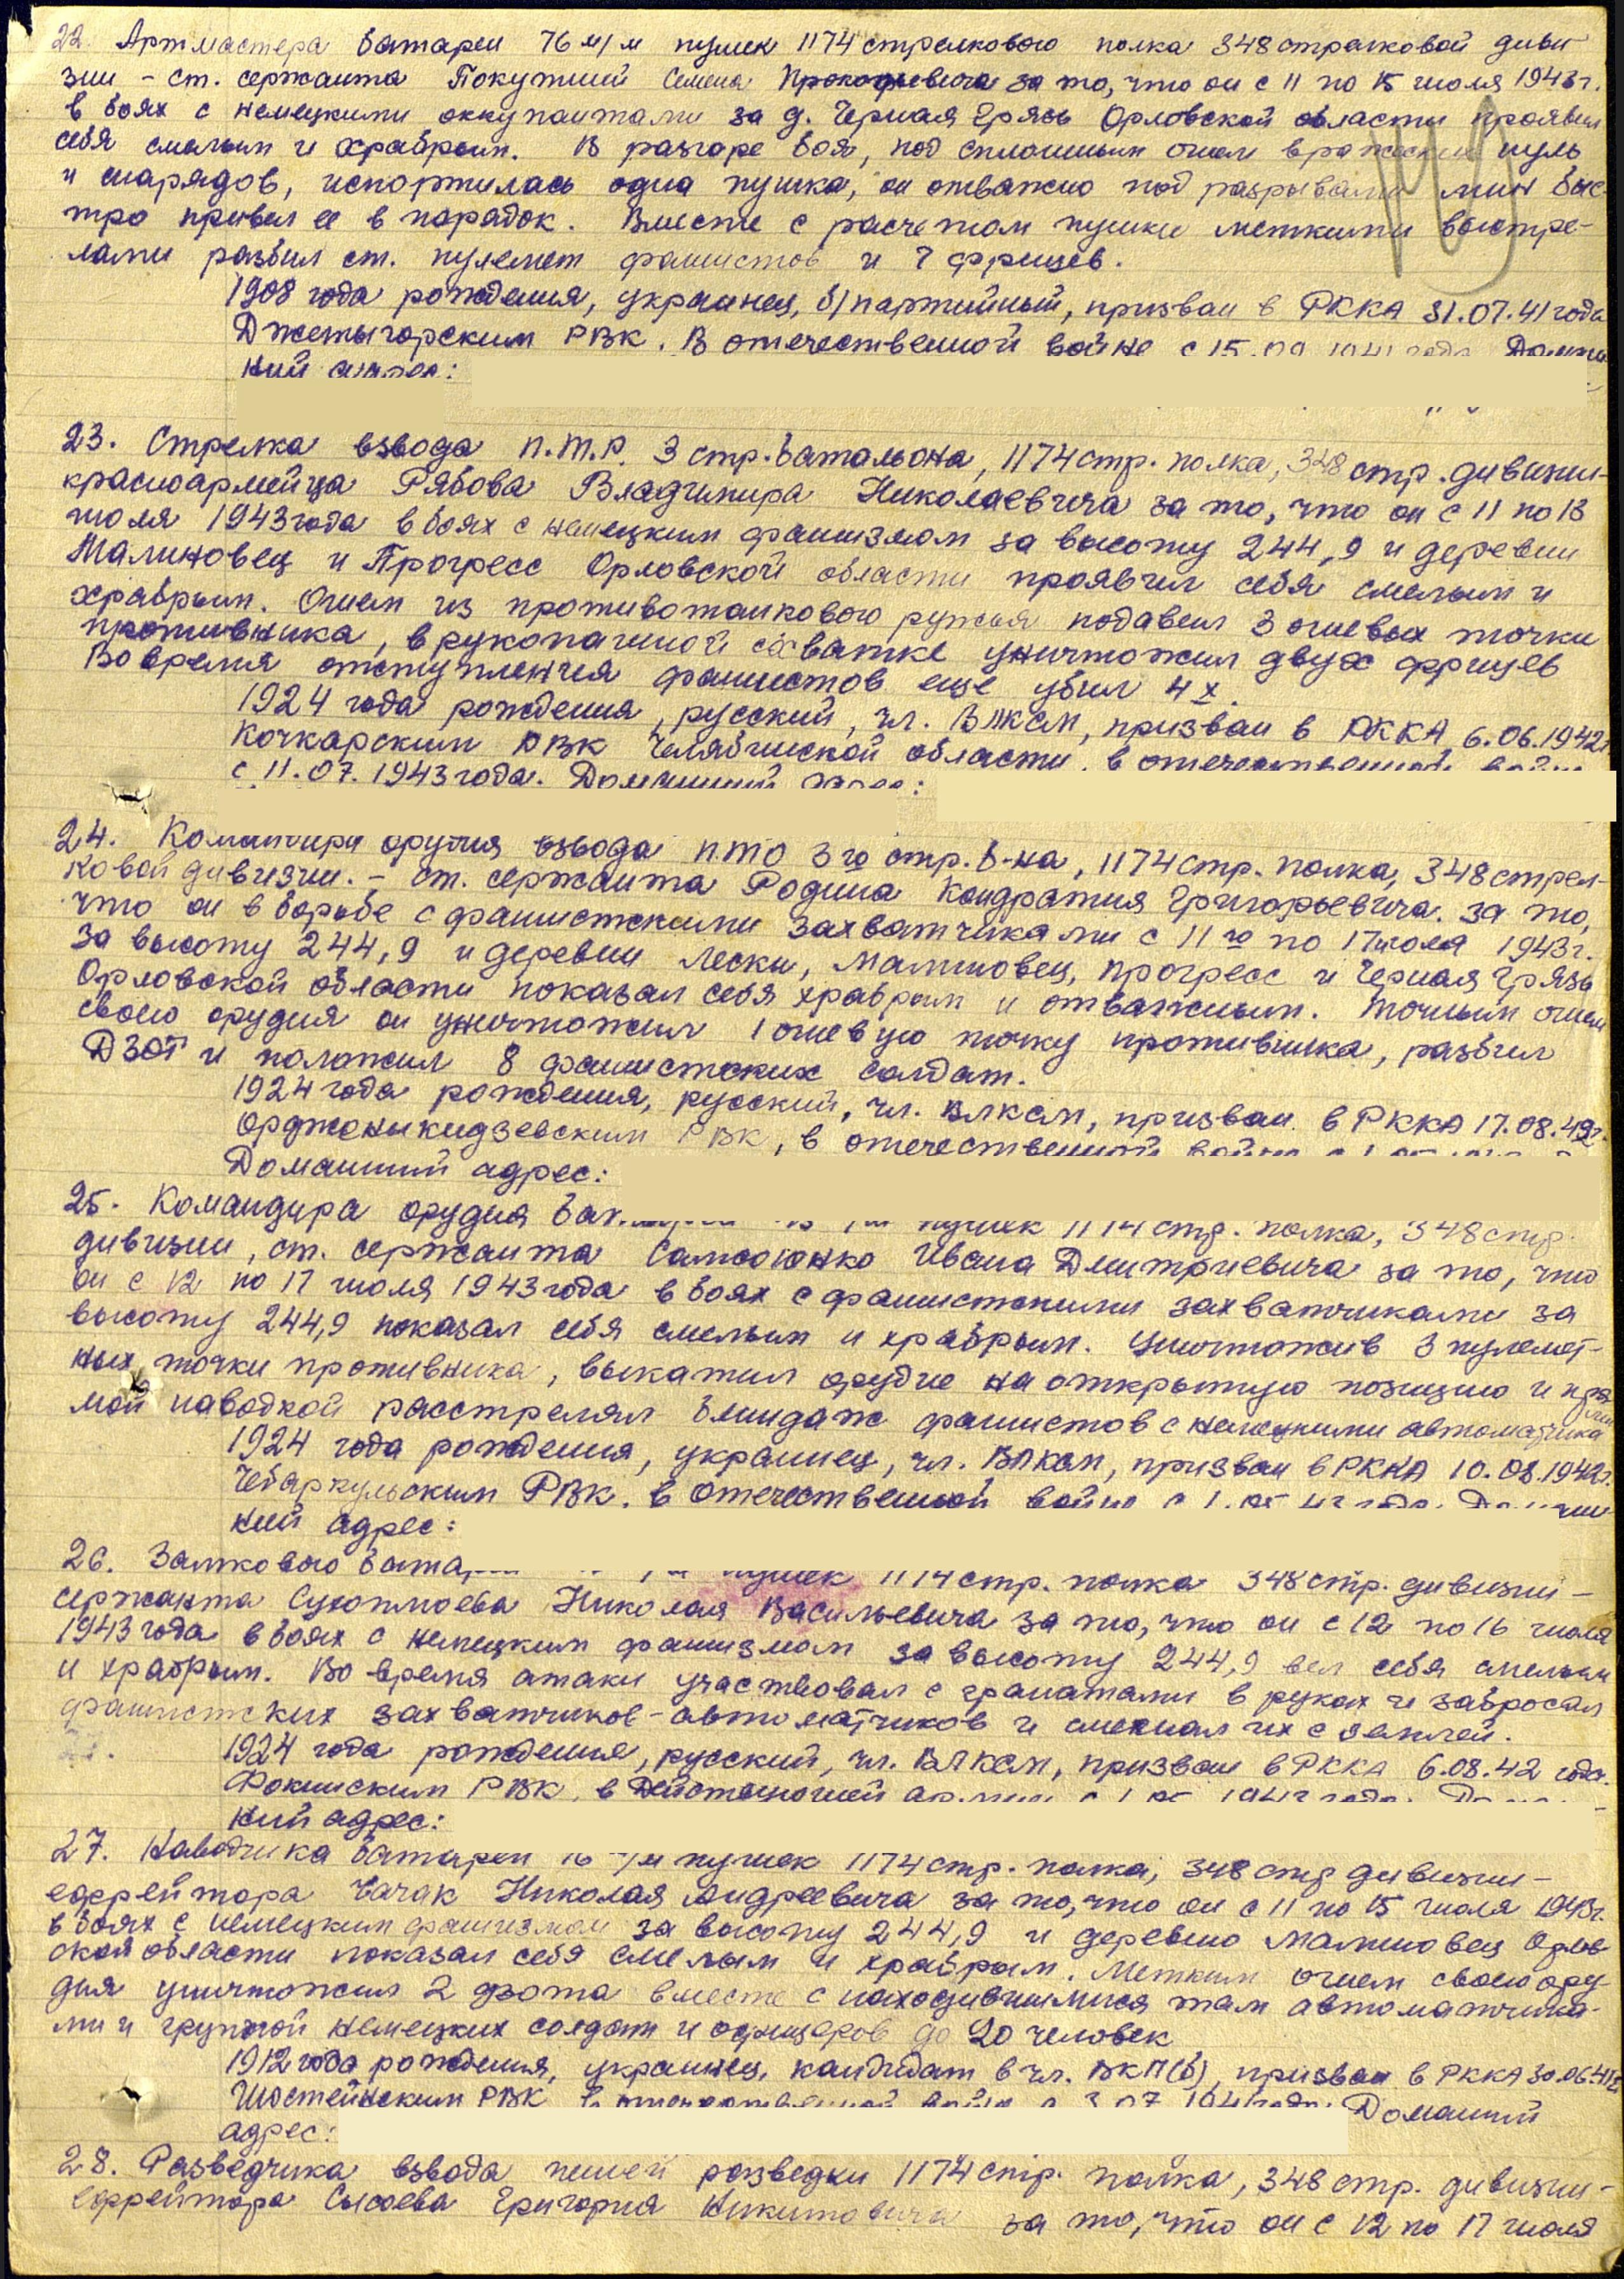 22. Артмастера батареи 76 м/м пушек 1174 стрелкового полка 348 стрелковой диви-
зии - ст. сержанта Покутний Семена Прокофьевича за то, что он с 11 по 15 июля 1943 г.
в боях с немецкими оккупантами за д. Черная Грязь Орловской области проявил
себя смелым и храбрым. В разгаре боя, под сплошным огнем вражеских пуль
и снарядов, испортилась одна пушка, он отважно под разрывами мин быс-
тро привел ее в порядок. Вместе с расчетом пушки меткими выстре-
лами разбил ст. пулемет фашистов и 7 фрицев.
1908 года рождения, украинец, б/партийный, призван в РККА 31.07.41 года
Джетыгорским РВК. В отечественной войне с 15.09 1941 года Домаш
ний адрес:
23. Стрелка взвода П.Т.Р. 3 стр. батальона, 1174 стр. полка, 348 стр. дивизии-
красноармейца Рябова Владимира Николаевича за то, что он с 11 по 13
июля 1943 года в боях с немецким фашизмом за высоту 244,9 и деревни
Малиновец и Прогресс Орловской области проявил себя смелым и
храбрым. Огнем из противотанкового ружья подавил 3 огневых точки
противника, в рукопашной схватке уничтожил двух фрицев
Во время отступления фашистов еще убил 4х.
1924 года рождения, русский, чл. ВЛКСМ, призван в РККА 6.06.1942г
Кочкарским РВК Челябинской области, в отечественной войне
с 11.07.1943 года. Домашний адрес:
24. Командира орудия взвода ПТО 3го стр. б-на, 1174 стр. полка, 348 стрел-
ковой дивизии. - ст. сержанта Родина Кондратия Григорьевича. за то,
что он в борьбе с фашистскими захватчиками с 11го по 17 июля 1943 г.
за высоту 244,9 и деревни Лески, Малиновец, Прогресс и Черная Грязь
Орловской области показал себя храбрым и отважным. Точным огнем
своего орудия он уничтожил 1 огневую точку противника, разбил
ДЗОТ и положил 8 фашистских солдат.
1924 года рождения, русский, чл. ВЛКСМ, призван в РККА 17.08.42г.
Орджоныкидзевским РВК, в отечественной войне с
Домашний адрес:
25. Командира орудия пушек 1174 стр. полка, 348 стр.
дивизии, ст. сержанта Ивана Дмитриевича за то, что
он с 12 по 17 июля 1943 года в боях с фашистскими захватчиками за
высоту 244,9 показал себя смелым и храбрым. Уничтожив 3 пулемет-
ных точки противника, выкатил орудие на открытую позицию и пря
мой наводкой расстрелял блиндаж фашистов с немецкими автоматчика
ми
1924 года рождения, украинец, чл. ВЛКСМ, призван в РККА 10.08.1942г.
Чебаркульским РВК. в отечественной войне с 1.05 43 года. Домаш
ний адрес:
26. Замкового пушек 1174 стр. полка 348 стр. дивизии -
сержанта Николая Васильевича за то, что он с 12 по 16 июля
1943 года в боях с немецким фашизмом за высоту 244,9 вел себя смелым
и храбрым. Во время атаки участвовал с гранатами в руках и забросал
фашистских захватчиков - автоматчиков и смешал их с землей.
1924 года рождения, русский, чл. ВЛКСМ, призван в РККА 6.08.42 года.
РВК, в Действующей армии с 1943 года.
ний адрес:
27. Наводчика батареи 76 м/м пушек 1174 стр. полка, 348 стр дивизии -
ефрейтора Чачак Николая Андреевича за то, что он с 11 по 15 июля 1943г.
в боях с немецким фашизмом за высоту 244,9 и деревню Малиновец Орлов-
ской области показал себя смелым и храбрым. Метким огнем своего ору
дия уничтожил 2 дзота вместе с находившимися там автоматчика-
ми и группой немецких солдат и офицеров до 20 человек
1912 года рождения, украинец, кандидат в чл. ВКП(б), призван в РККА 30.06.41г
РВК в отечественной войне с 3.07 1941 года. Домашний
адрес:
28. Разведчика взвода пешей разведки 1174 стр. полка, 348 стр. дивизии -
ефрейтора Сысоева Григория Никитовича за то, что он с 12 по 17 июля